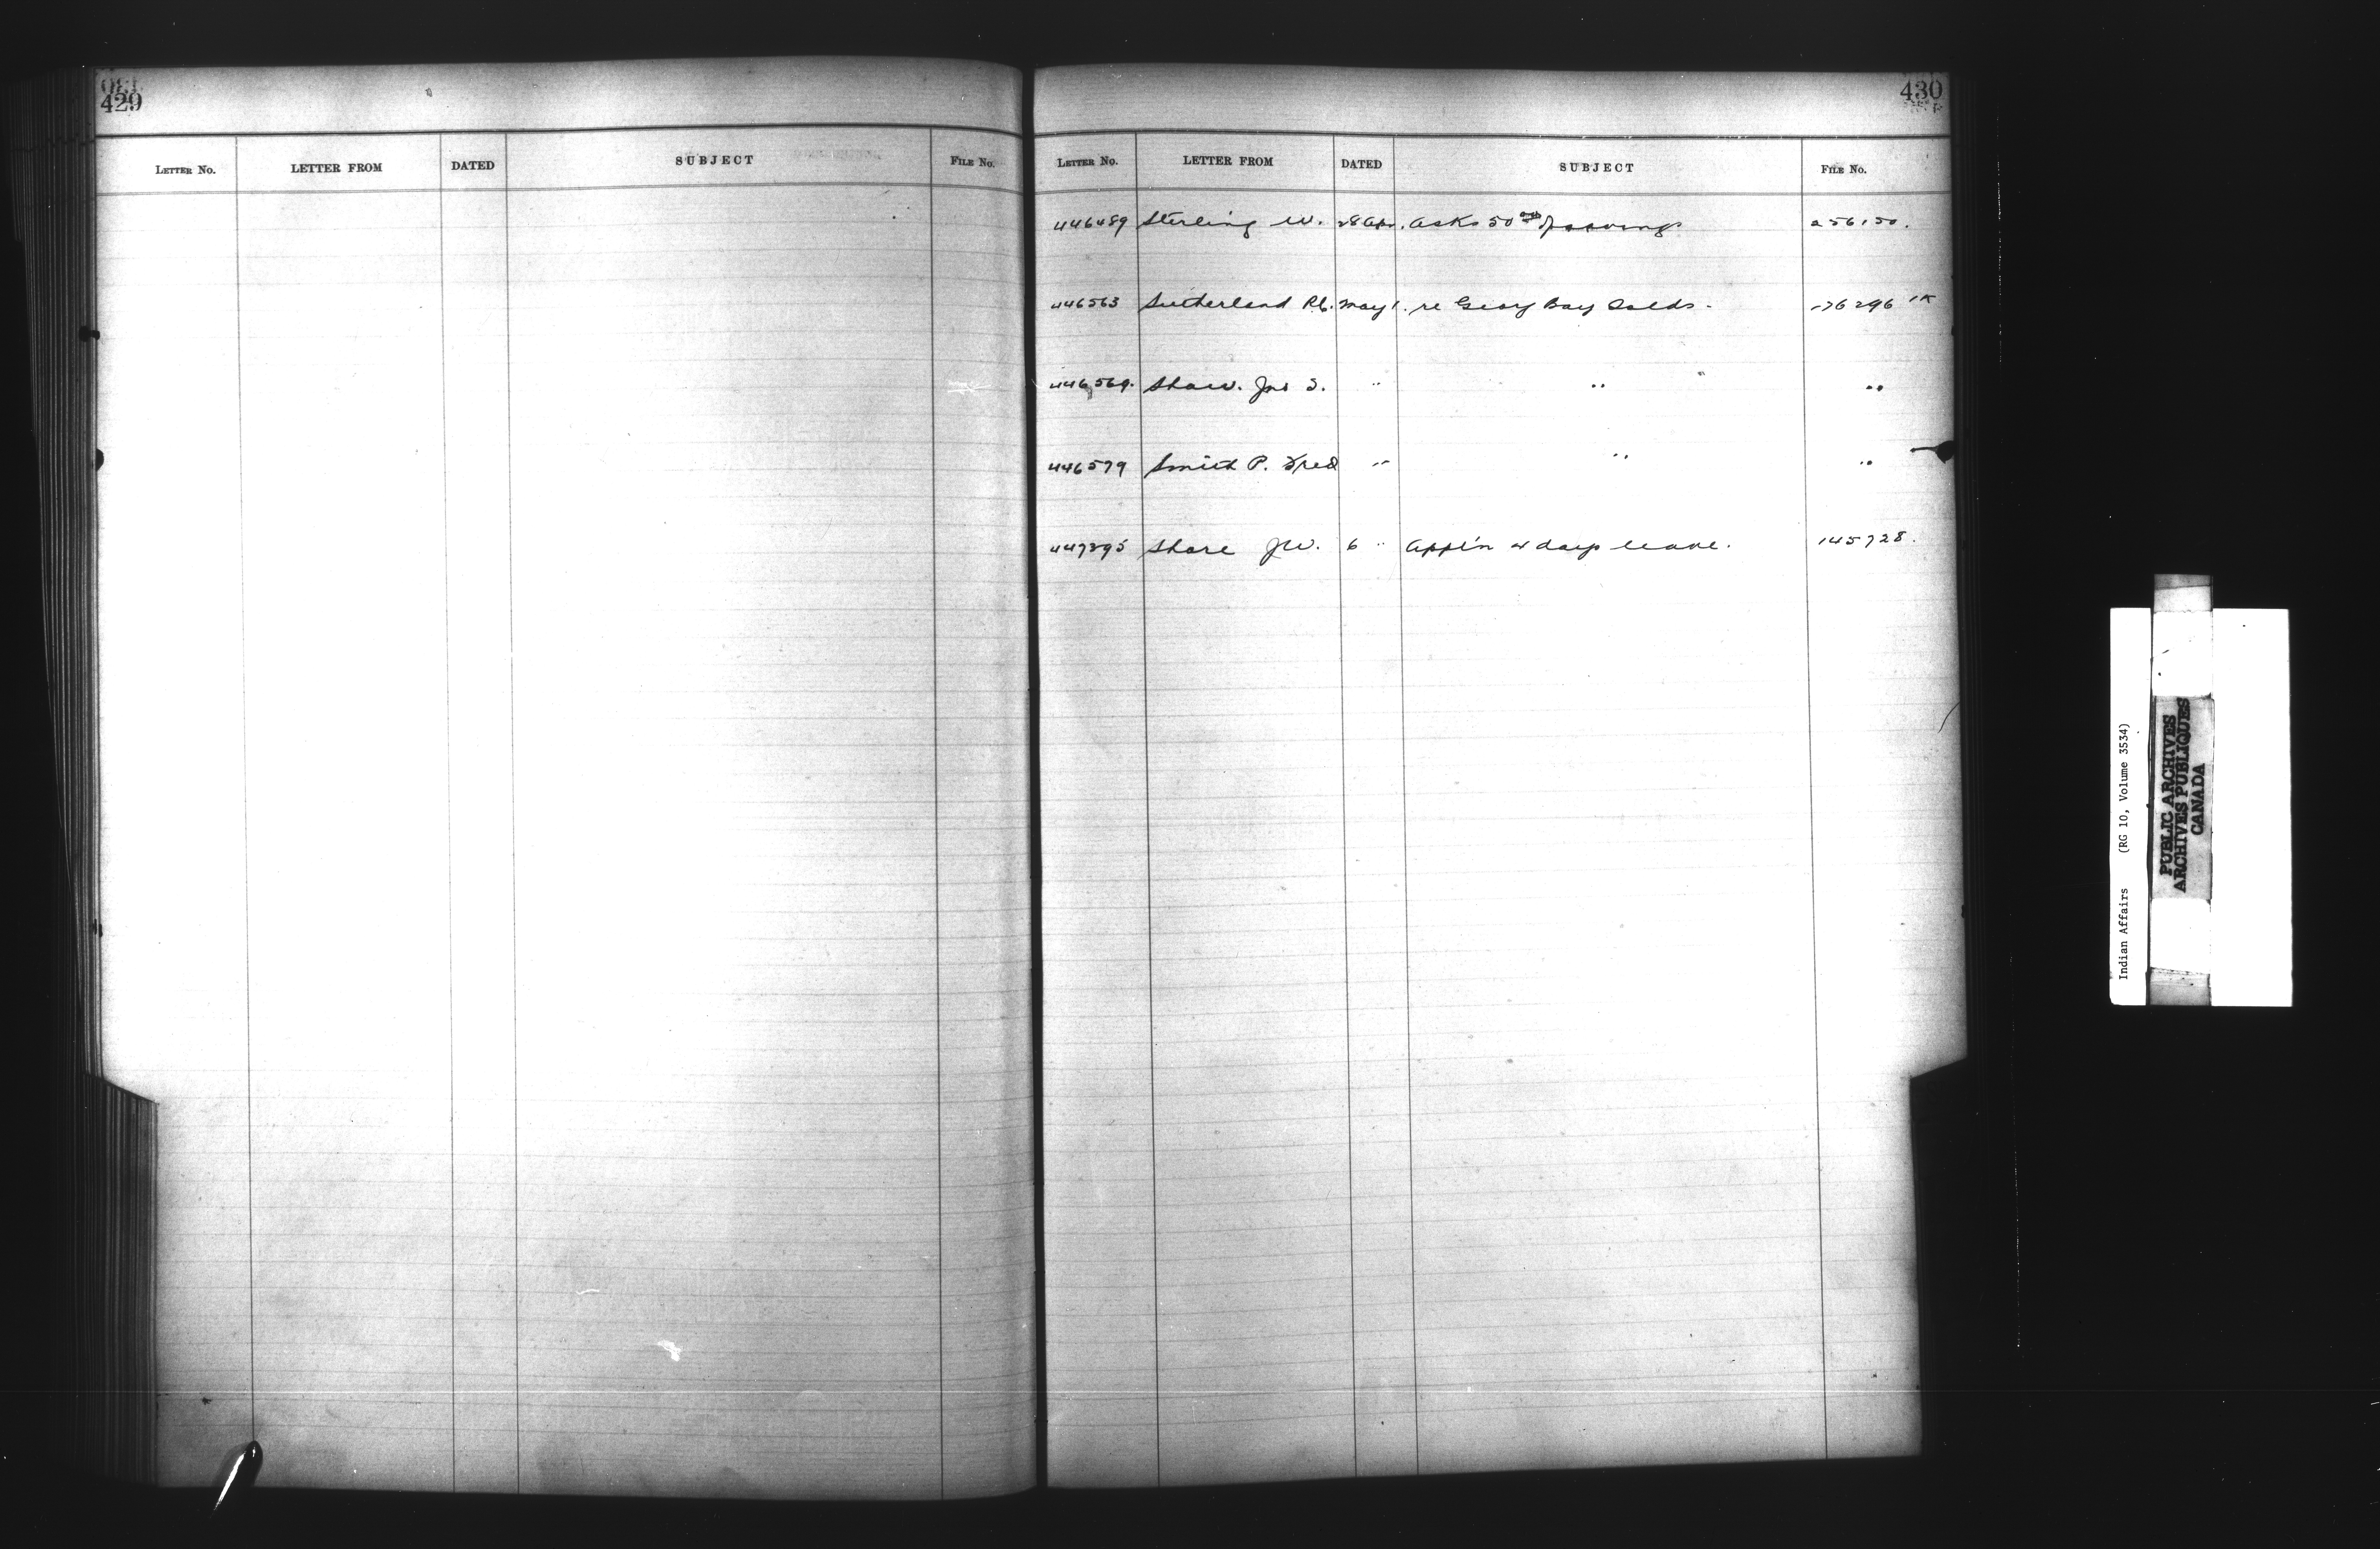 429
LETTER NO. LETTER FROM DATED SUBJECT FILE NO.
430
LETTER NO. LETTER FROM DATED SUBJECT FILE NO.
446489 Sterling W. 28 Apr. asks 50 256150.
446563 Sutherland R.C. May 1. re Geory Bay Islds. 176296
446569. Shaw. Jno S. " " "
446579 Smith P. Fred " " "
447295 Shore J.W. 6 " Appl'n 4 days leave. 145728.
Indian Affairs (RG 10, Volume 3534)
PUBLIC ARCHIVES
ARCHIVES PUBLIQUES
CANADA